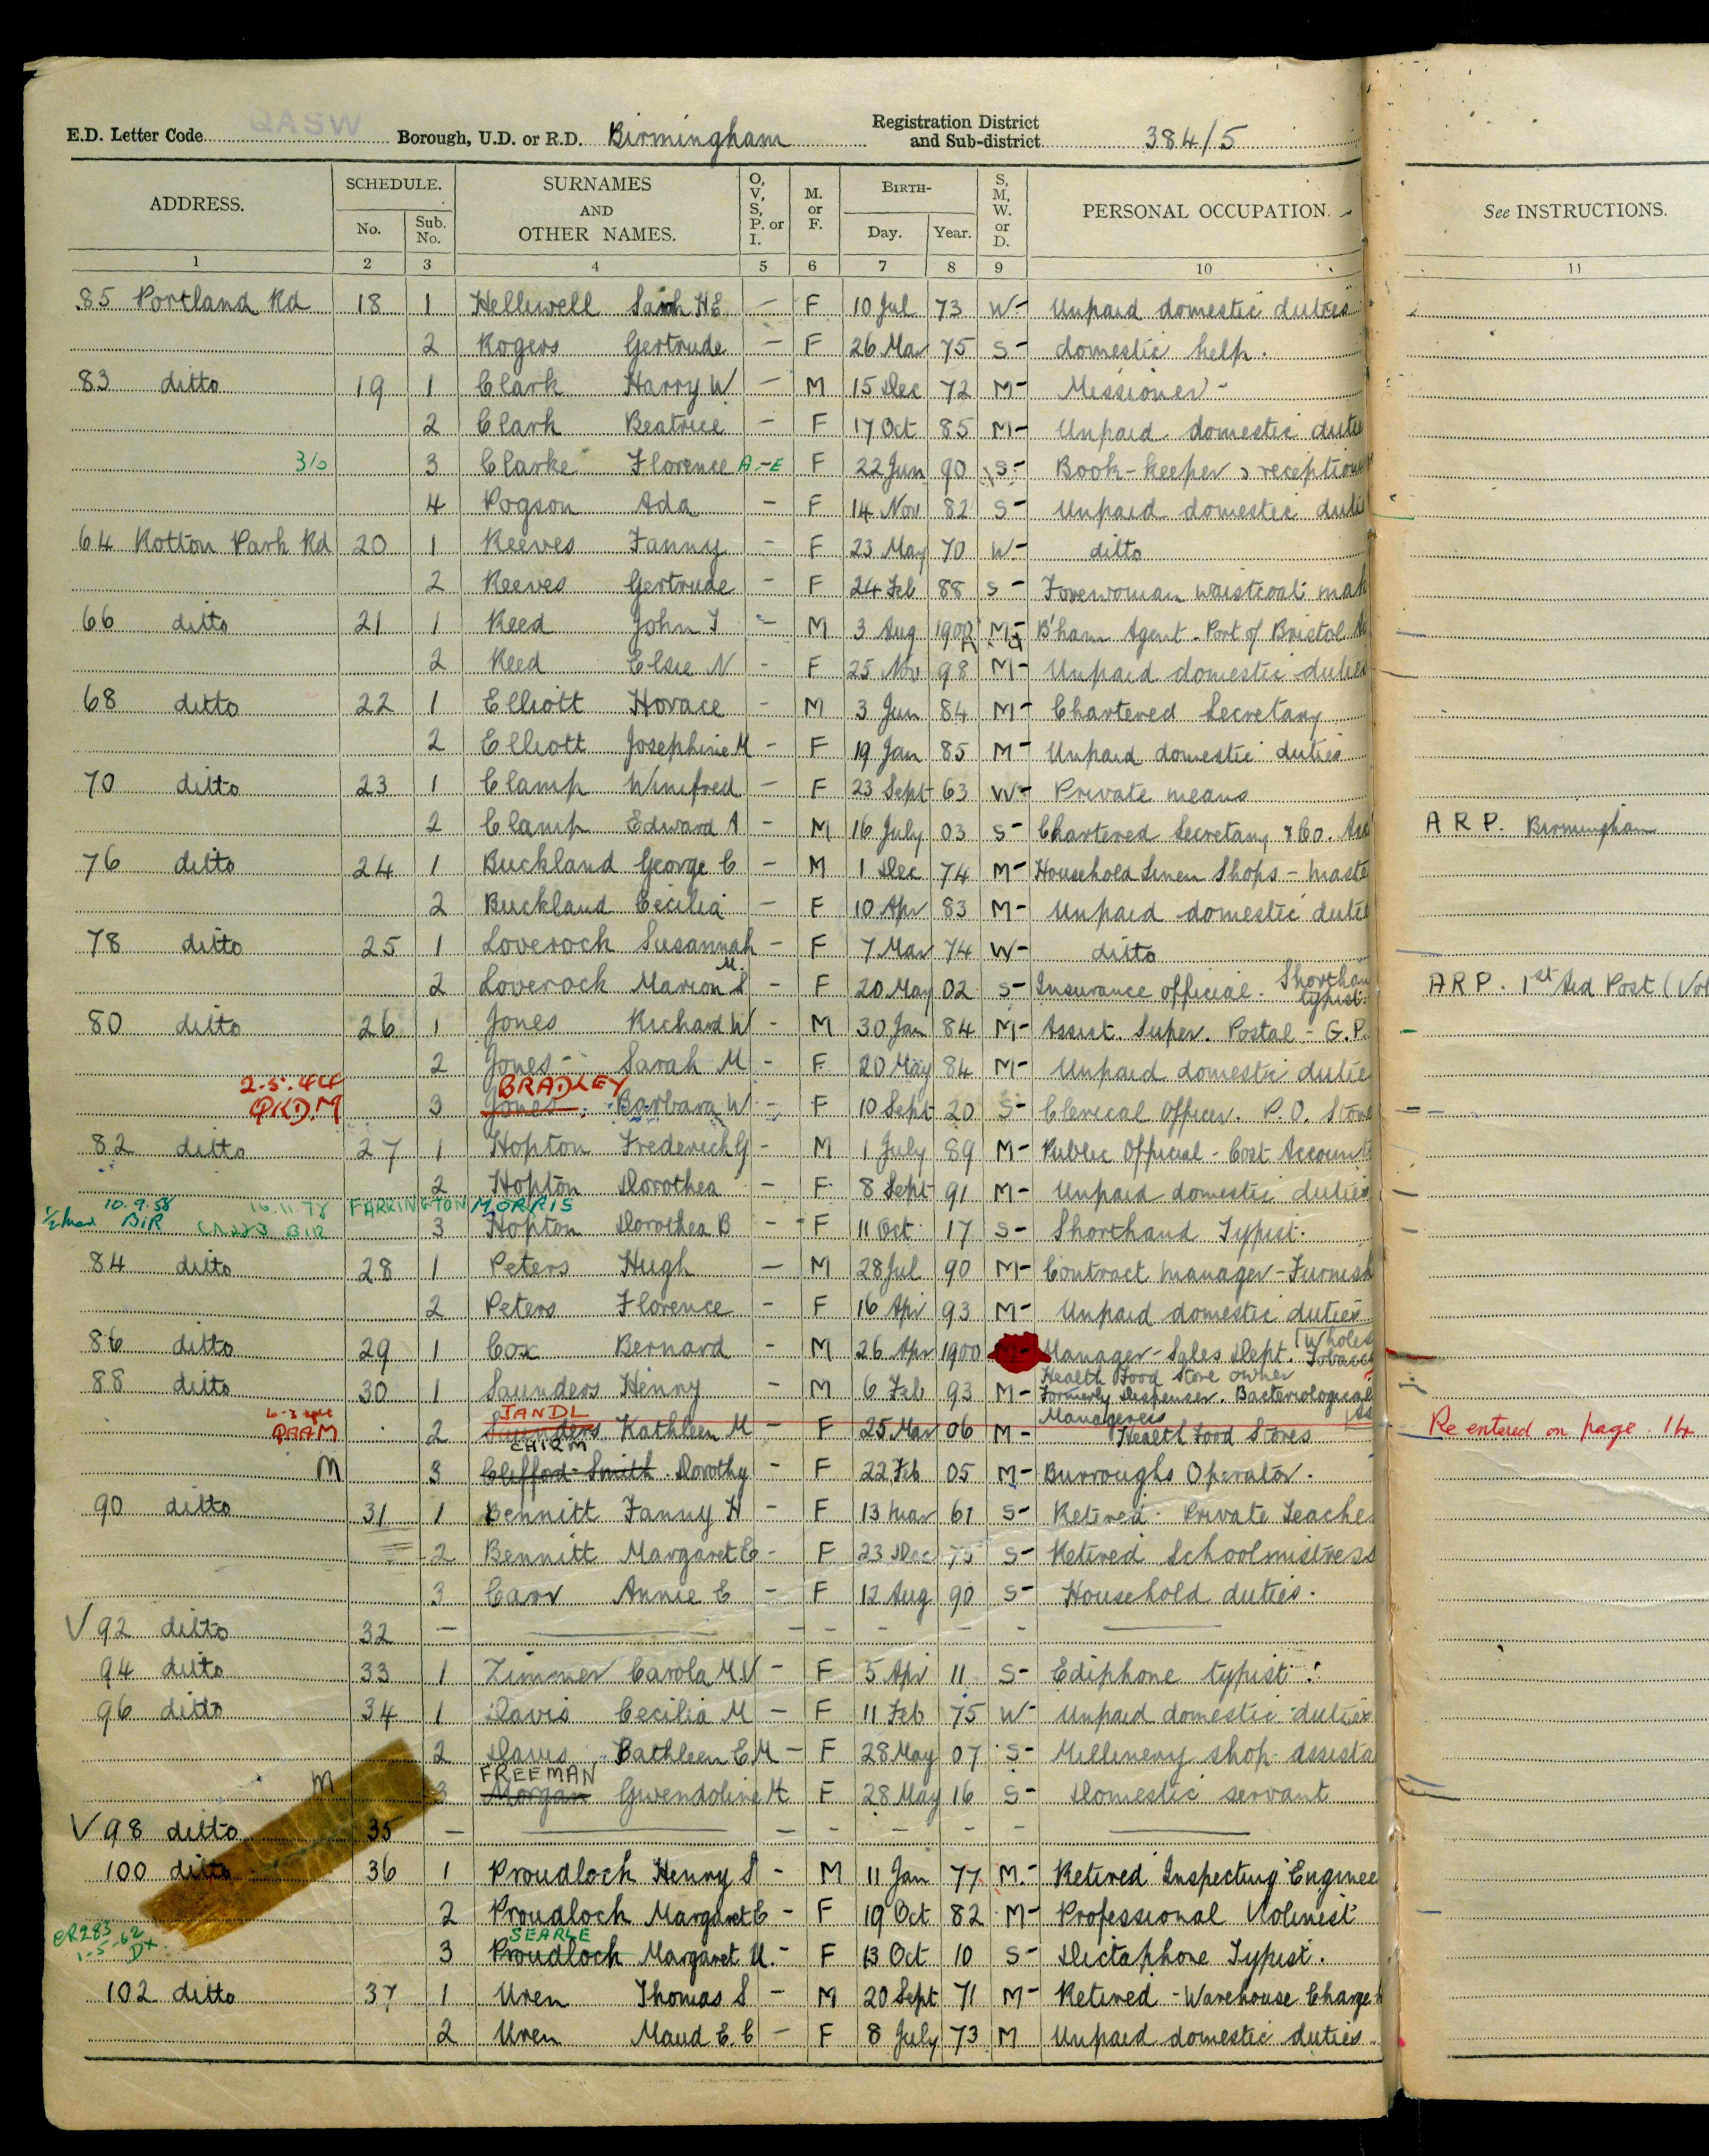 E.D. Letter Code QASW Borough, U.D. or R.D. Birmingham Registration District and Sub-district 384/5
ADDRESS. SCHEDULE. No. Sub. No. SURNAMES AND OTHER NAMES. O, V, S, P. or I. M. or F. BIRTH- Day. Year. S, M, W. or D. PERSONAL OCCUPATION. See INSTRUCTIONS.
1 2 3 4 5 6 7 8 9 10 11
85 Portland Rd 18 1 Helliwell Sarah H E — F 10 Jul 73 W- Unpaid domestic duties
2 Rogers Gertrude — F 26 Mar 75 S- domestic help.
83 ditto 19 1 Clark Harry W — M 15 Dec 72 M- Missioner-
2 Clark Beatrice — F 17 Oct 85 M- Unpaid domestic dutie
310 3 Clarke Florence A-E F 22 Jun 90 S- Book-keeper & reception
4 Pogson Ada - F 14 Nov 82 S- Unpaid domestic duti
64 Rotton Park Rd 20 1 Reeves Fanny - F 23 May 70 W- ditto
2 Reeves Gertrude - F 24 Feb 88 S- Forewoman waistcoat mak
66 ditto 21 1 Reed John T - M 3 Aug 1900 M- B'ham Agent - Port of Bristol
2 Reed Elsie N - F 25 Nov 98 M- Unpaid domestic duties
68 ditto 22 1 Elliott Horace - M 3 Jun 84 M- Chartered Secretary
2 Elliott Josephine M - F 19 Jan 85 M- Unpaid domestic duties
70 ditto 23 1 Clamp Winifred - F 23 Sept 63 W- Private means
2 Clamp Edward A - M 16 July 03 S- Chartered Secretary & Co. ARP. Birmingham
76 ditto 24 1 Buckland George C - M 1 Dec 74 M- Household Linen Shops - Maste
2 Buckland Cecilia - F 10 Apr 83 M- Unpaid domestic dutie
78 ditto 25 1 Loverock Susannah - F 7 Mar 74 W- ditto
M.
2 Loverock Marion S - F 20 May 02 S- Insurance official. Shorthan typist. ARP. 1st Aid Post (Vol
80 ditto 26 1 Jones Richard W - M 30 Jan 84 M- Assist. Super. Postal - G.P.
2 Jones Sarah M - F 20 May 84 M- Unpaid domestic dutie
2.5.44 BRADLEY
QKD.M 3 Jones Barbara W - F 10 Sept 20 S- Clerical Officer. P.O. Store
82 ditto 27 1 Hopton Frederick G - M 1 July 89 M- Public Official - Cost Account
2 Hopton Dorothea - F 8 Sept 91 M- Unpaid domestic duties
10.9.58 BIR 16.11.78 BIR FARRINGTON MORRIS
3 Hopton Dorothea B - F 11 Oct 17 S- Shorthand Typist.
84 ditto 28 1 Peters Hugh — M 28 Jul 90 M- Contract Manager - Furnish
2 Peters Florence - F 16 Apr 93 M- Unpaid domestic duties
86 ditto 29 1 Cox Bernard - M 26 Apr 1900 M- Manager - Sales Dept. (Wholes Tobacco
Health Food Store owner
88 ditto 30 1 Saunders Henry - M 6 Feb 93 M- Formerly Dispenser. Bacteriological
JANDL
QAAM 2 Saunders Kathleen M - F 25 Mar 06 M- Manageress Health Food Stores Re entered on page 14
CHIRM
M 3 Clifford-Smith Dorothy - F 22 Feb 05 M- Burroughs Operator.
90 ditto 31 1 Bennitt Fanny H - F 13 Mar 61 S- Retired Private Teacher
2 Bennitt Margaret E - F 23 Dec 75 S- Retired Schoolmistress
3 Carr Annie E - F 12 Aug 90 S- Household duties.
V 92 ditto 32 — — - - - - - —
94 ditto 33 1 Zimmer Carola M.V - F 5 Apr 11 S- Ediphone typist
96 ditto 34 1 Davis Cecilia M - F 11 Feb 75 W- Unpaid domestic duties
2 Davis Kathleen E.M - F 28 May 07 S- Millinery shop assista
FREEMAN
m 3 Morgan Gwendoline M F 28 May 16 S- Domestic servant
V 98 ditto 35 — — - - - - - —
100 ditto 36 1 Proudlock Henry S - M 11 Jan 77 M- Retired Inspecting Enginee
2 Proudlock Margaret E - F 19 Oct 82 M- Professional Violinist
CR283 1-5-62 SEARLE
3 Proudlock Margaret U. - F 13 Oct 10 S- Dictaphone Typist.
102 ditto 37 1 Uren Thomas S - M 20 Sept 71 M- Retired - Warehouse Charge h
2 Uren Maud E. C - F 8 July 73 M Unpaid domestic duties.